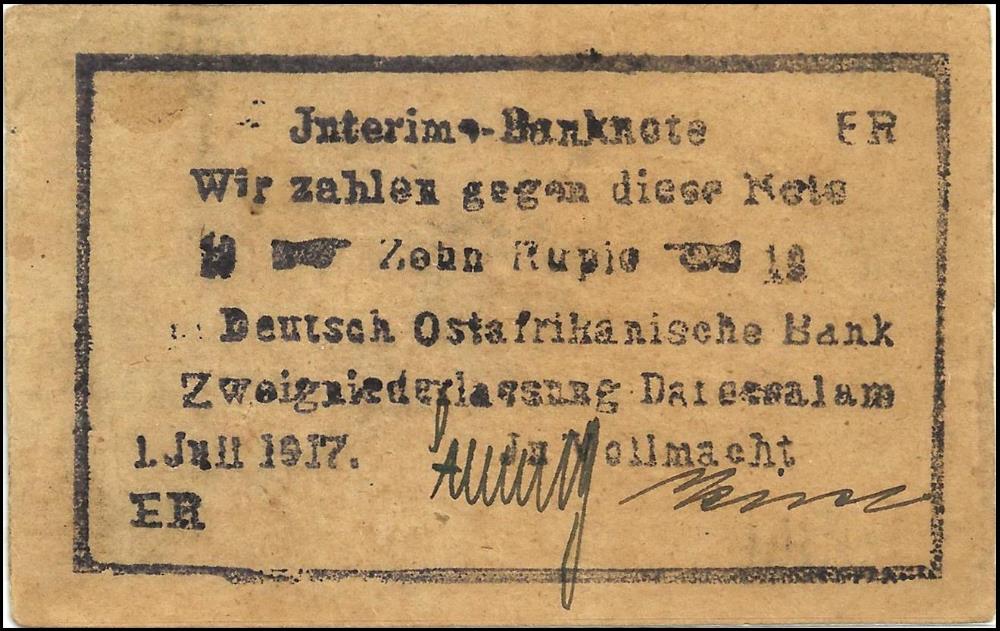 Jnterims-Banknote ER
Wir zahlen gegen diese Note
10 Zehn Rupie 10
Deutsch Ostafrikanische Bank
Zweigniederlassung Daressalam
1. Juli 1917. Jn Vollmacht
ER